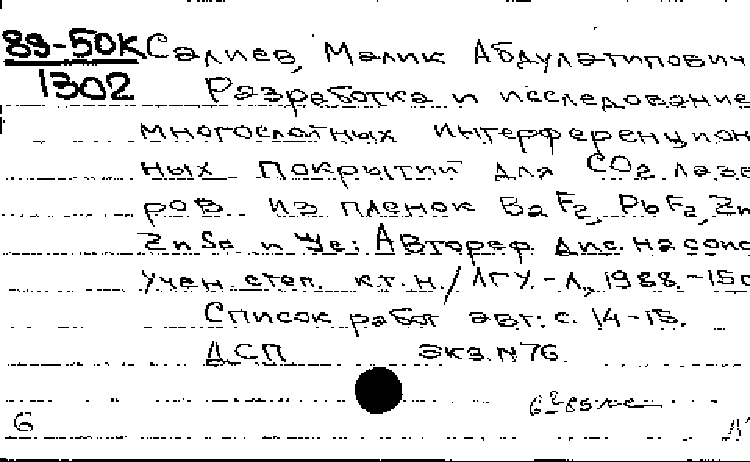 89-50К Салиев, Малик Абдулатипович
1302 Разработка и исследование
многослойных интерференцион
ных покрытий для CO2 лазе
ров из пленок BaF2, PbF2, Zn
ZnSe и Ge: Автореф. дис. на соис
учен. степ. к.т.н./ЛГУ.-Л., 1988.-15с
Список работ авт.: с. 14-15.
ДСП экз. N76.
6